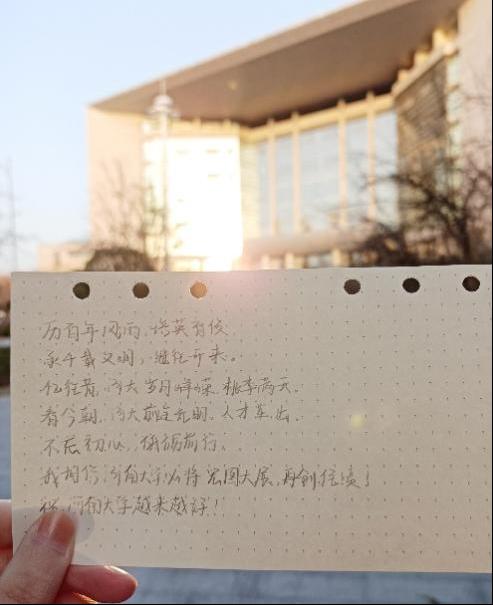 历百年风雨,培英育俊
承千载文明,继往开来。
忆往昔,河大岁月峥嵘,桃李满天。
看今朝,河大前途光明,人才辈出。
不忘初心,砥砺前行。
我相信河南大学必将宏图大展,再创佳绩!
祝河南大学越来越好!